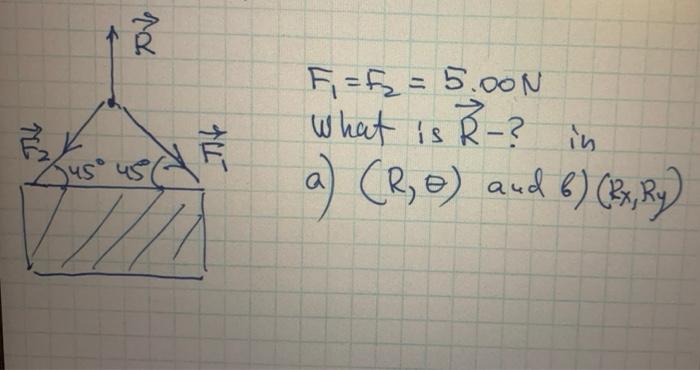 R⃗
F⃗₂ 45° 45° F⃗₁
F₁ = F₂ = 5.00N
What is R⃗ -? in
a) (R, θ) and b) (Rx, Ry)